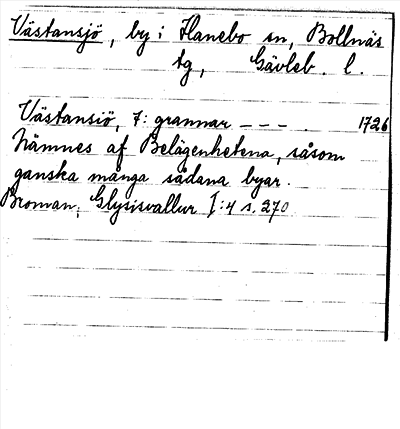 Västansjö, by i Hanebo sn, Bollnäs
tg, Gävleb. l.
Västansiö, 7: grannar --- . 1726
Nämnes af Belägenhetena, såsom
ganska många sådana byar.
Broman, Glysisvallur I:4 s. 270